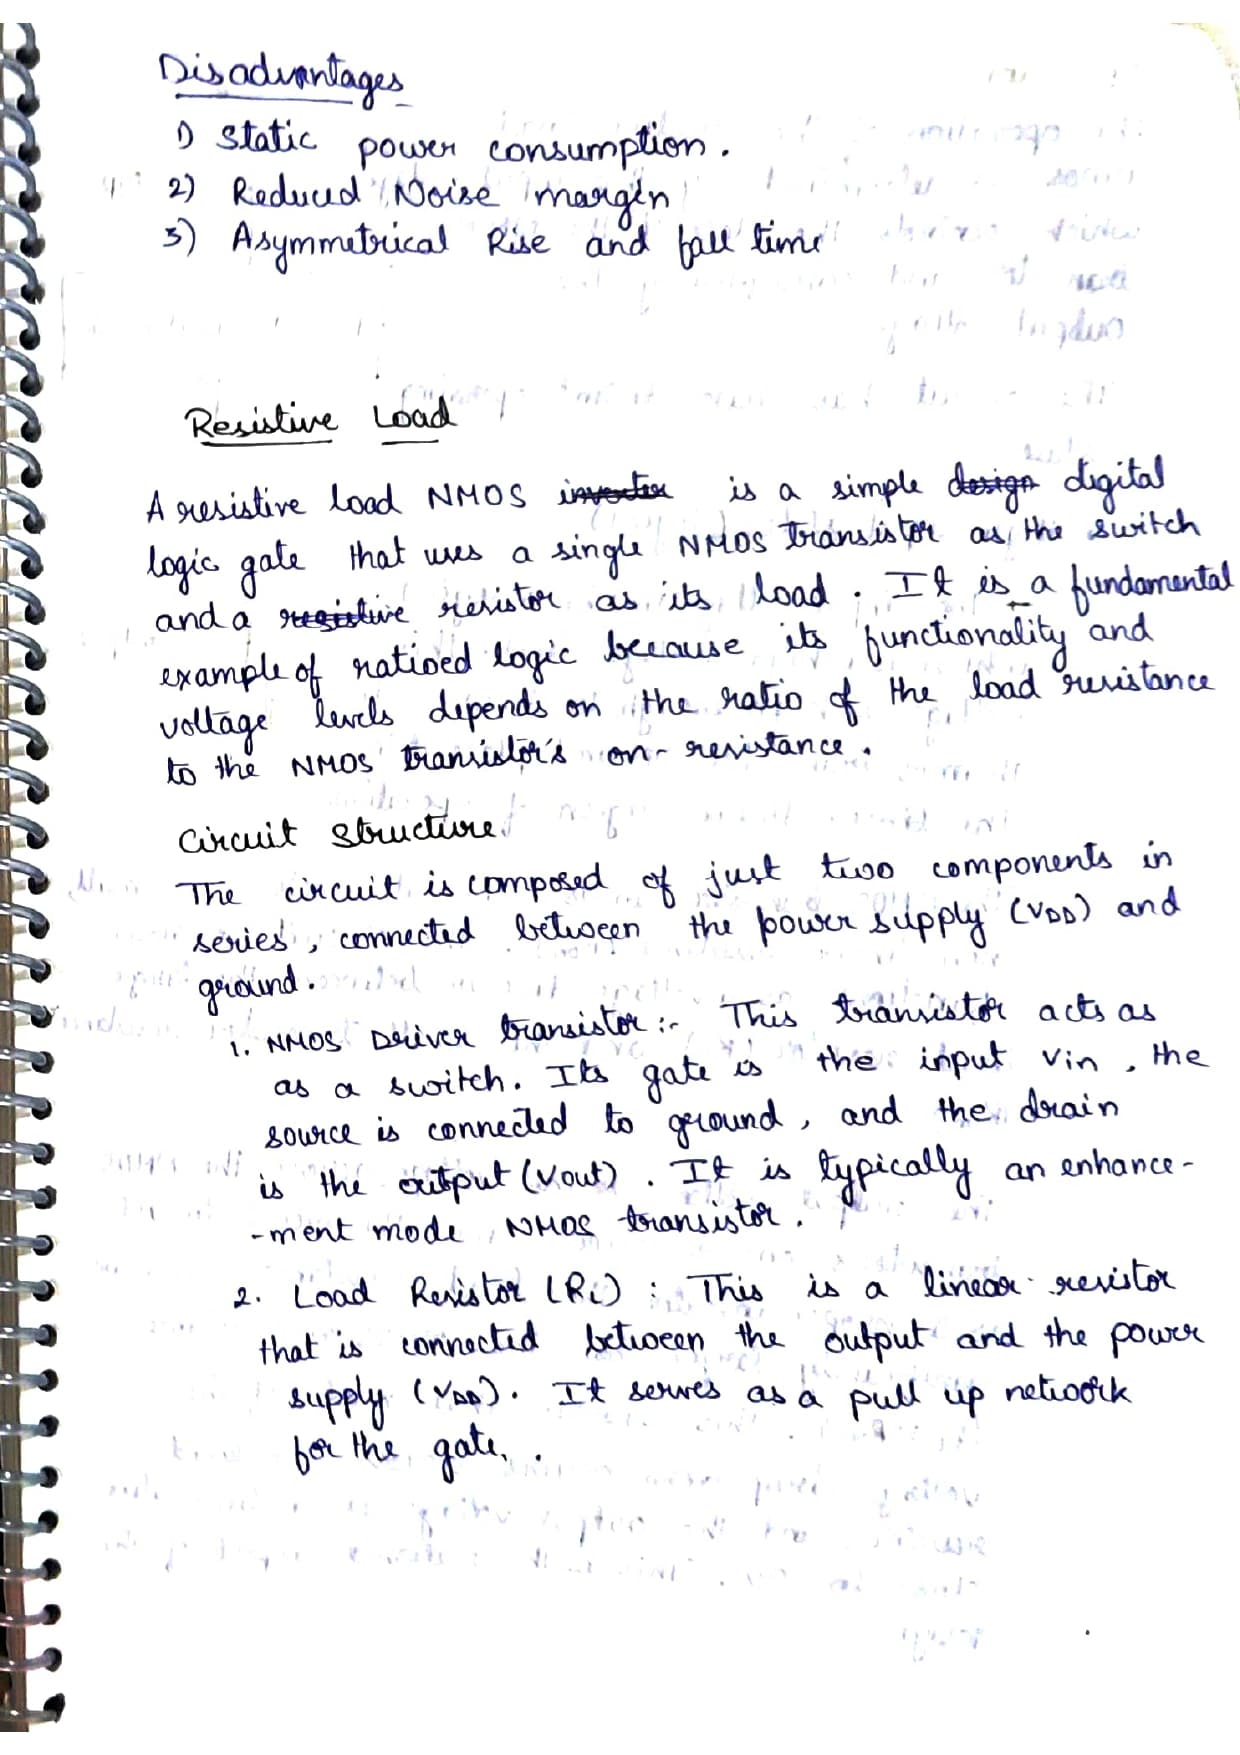 Disadvantages
1) Static power consumption.
2) Reduced Noise margin
3) Asymmetrical Rise and fall time
Resistive Load
A resistive load NMOS inverter is a simple design digital
logic gate that uses a single NMOS transistor as the switch
and a resistive resistor as its load. It is a fundamental
example of ratioed logic because its functionality and
voltage levels depends on the ratio of the load resistance
to the NMOS transistor's on-resistance.
Circuit structure
The circuit is composed of just two components in
series, connected between the power supply (VDD) and
ground.
1. NMOS Driver transistor :- This transistor acts as
as a switch. Its gate is the input Vin, the
source is connected to ground, and the drain
is the output (Vout). It is typically an enhance-
-ment mode NMOS transistor.
2. Load Resistor (RL) : This is a linear resistor
that is connected between the output and the power
supply (VDD). It serves as a pull up network
for the gate.